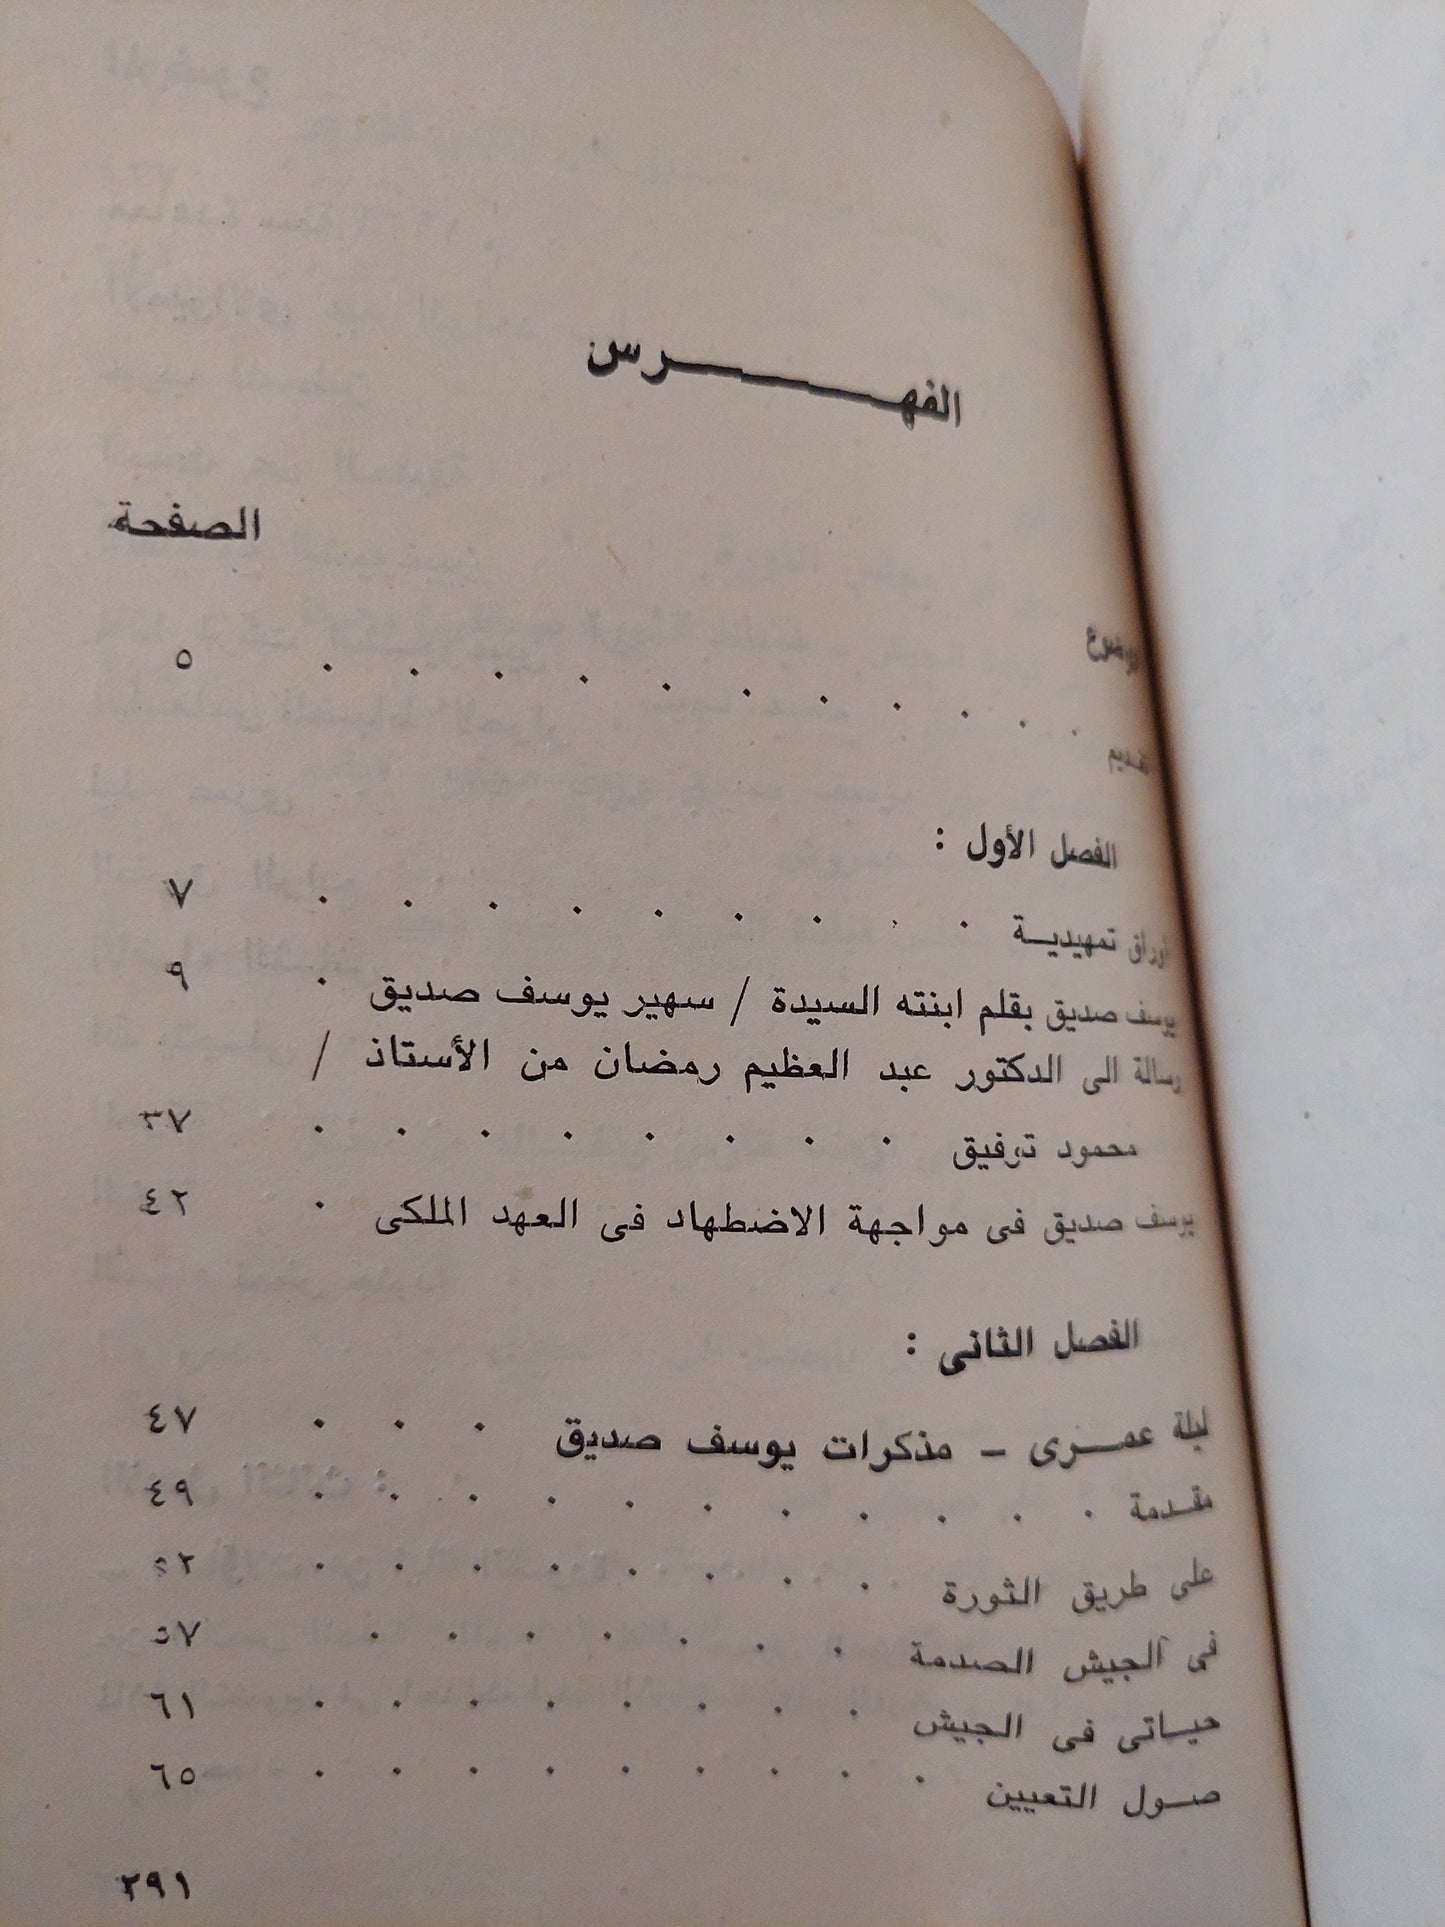 الفهـــــرس
الصفحة
الموضوع
تقديم . . . . . . . . . . . ٥
الفصل الأول :
أوراق تمهيديـة . . . . . . . . . ٧
يوسف صديق بقلم ابنته السيدة / سهير يوسف صديق . ٩
رسالة الى الدكتور عبد العظيم رمضان من الأستاذ /
محمود توفيق . . . . . . . . ٣٧
يوسف صديق فى مواجهة الاضطهاد فى العهد الملكى . ٤٢
الفصل الثانى :
ليلة عمـــرى – مذكرات يوسف صديق . . . ٤٧
مقـدمة . . . . . . . . . . . ٤٩
على طريق الثورة . . . . . . . . ٥٢
فى الجيش الصدمة . . . . . . . ٥٧
حيـاتى فى الجيش . . . . . . . . ٦١
صـول التعيين . . . . . . . . . ٦٥
٢٩١